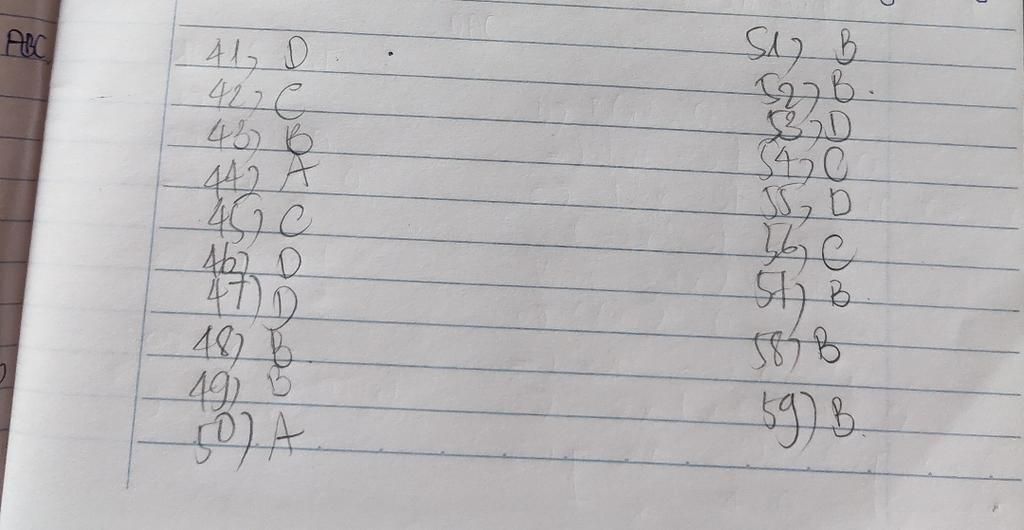 ABC
41, D
42, C
43, B
44, A
45, C
46, D
47) D
48, B.
49, B
50) A
51, B
52, B.
53, D
54, C
55, D
56, C
57, B.
58, B
59) B.